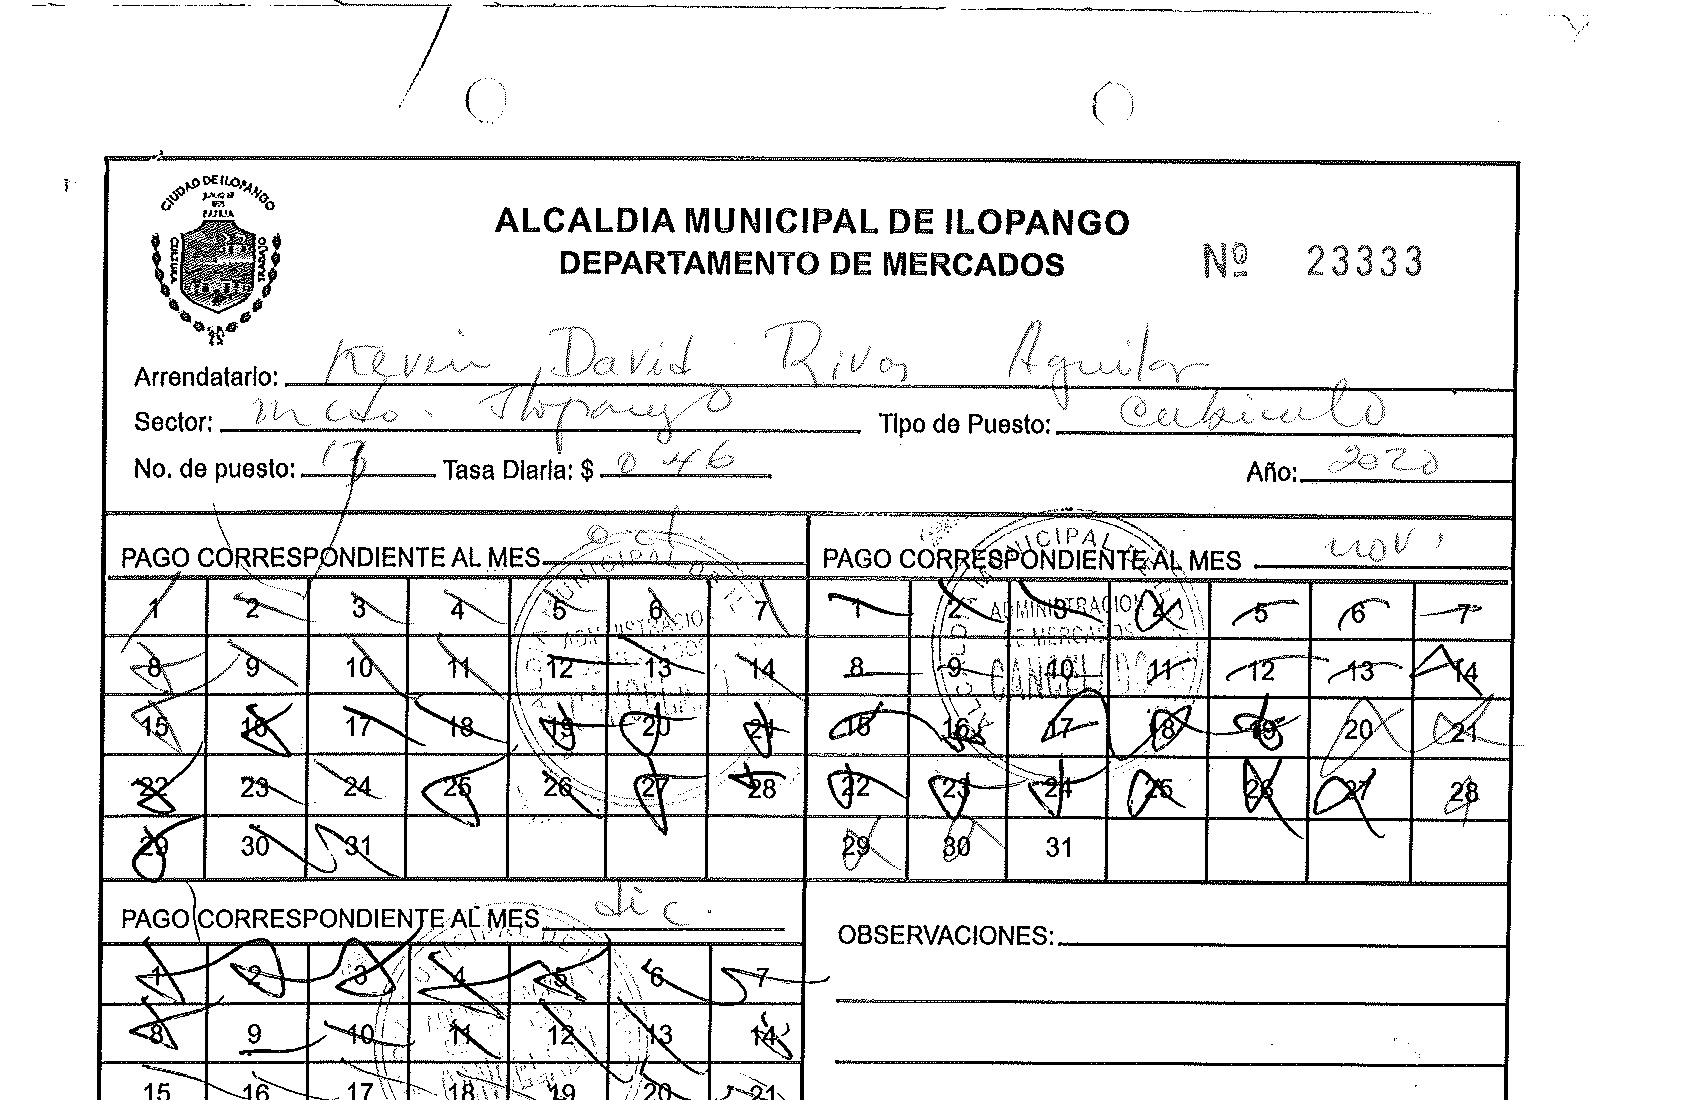 CIUDAD DE ILOPANGO
ALCALDIA MUNICIPAL DE ILOPANGO
DEPARTAMENTO DE MERCADOS
Nº 23333
Arrendatario: Kevin David Rivas Aguilar
Sector: mcdo. Ilopango Tipo de Puesto: Cubiculo
No. de puesto: Tasa Diaria: $ 0 46 Año: 2020
PAGO CORRESPONDIENTE AL MES oct.
1 2 3 4 5 6 7
8 9 10 11 12 13 14
15 16 17 18 19 20 21
22 23 24 25 26 27 28
29 30 31
PAGO CORRESPONDIENTE AL MES nov.
1 2 3 4 5 6 7
8 9 10 11 12 13 14
15 16 17 18 19 20 21
22 23 24 25 26 27 28
29 30 31
ADMINISTRACION
DE MERCADOS
CANCELADO
PAGO CORRESPONDIENTE AL MES dic.
1 2 3 4 5 6 7
8 9 10 11 12 13 14
15 16 17 18 19 20 21
OBSERVACIONES: